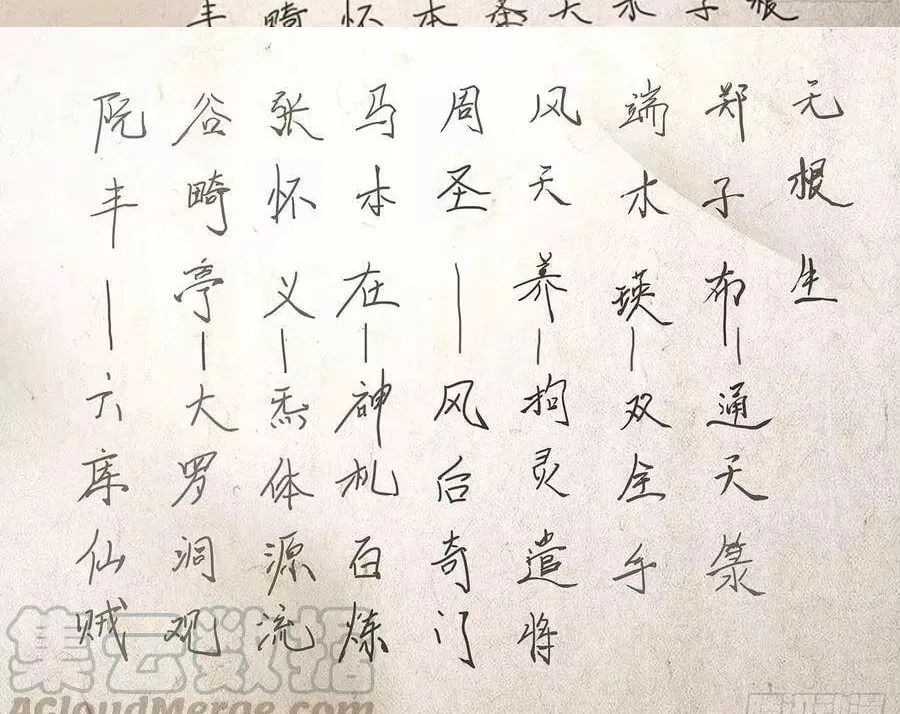 丰畸怀本圣天木子根
无根生
郑子布—通天箓
端木瑛—双全手
风天养—拘灵遣将
周圣—风后奇门
马本在—神机百炼
张怀义—炁体源流
谷畸亭—大罗洞观
阮丰—六库仙贼
集云数据
ACloudMerge.com